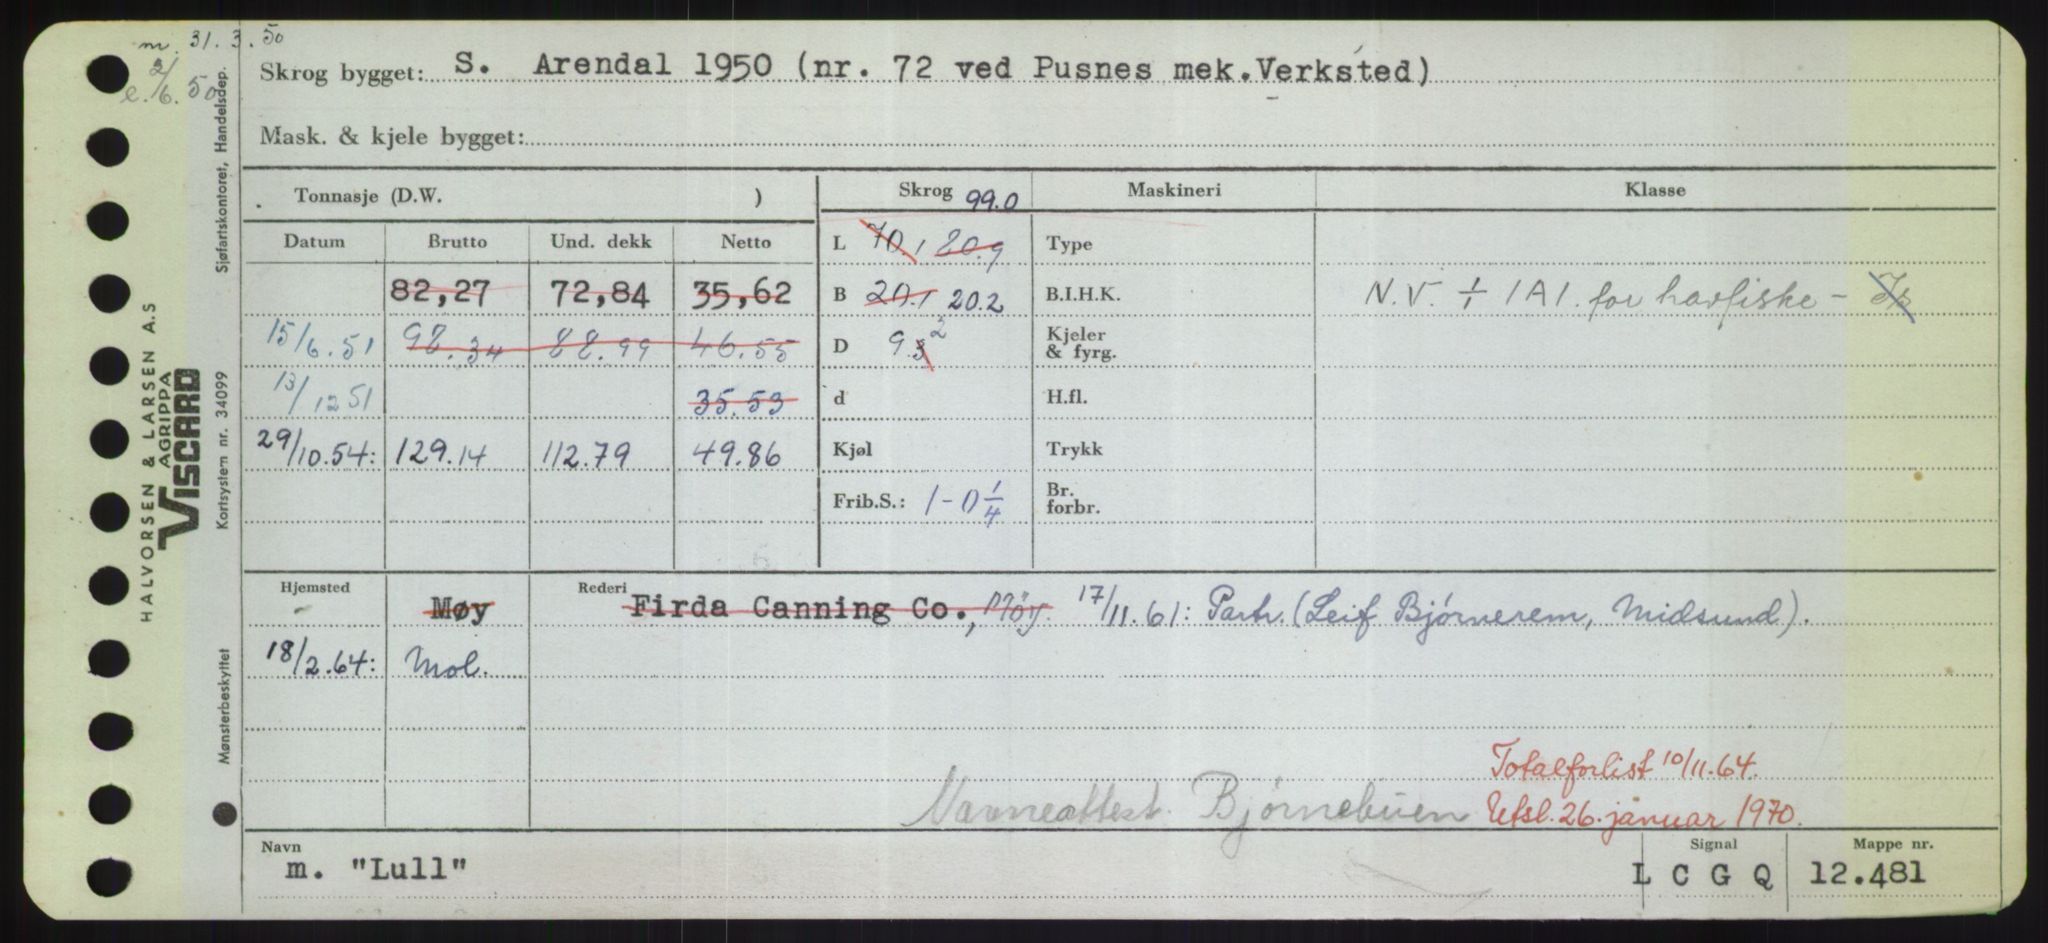 m. 31.3.50
e. 2/6.50
Skrog bygget: S. Arendal 1950 (nr. 72 ved Pusnes mek.Verksted)
Mask. & kjele bygget:
Tonnasje (D.W. )
Skrog 99.0
Maskineri
Klasse
Datum Brutto Und. dekk Netto
L 70.1 80.9
Type
82,27 72,84 35,62
B 20.1 20.2
B.I.H.K.
N.V. + 1A1. for havfiske -
15/6.51 98.34 88.99 46.55
D 9.3 2
Kjeler
& fyrg.
13/12 51 35.53
d
H.fl.
29/10.54: 129.14 112.79 49.86
Kjøl
Trykk
Frib.S.: 1-0 1/4
Br.
forbr.
Hjemsted
Rederi
Møy Firda Canning Co., Møy. 17/11.61: Partr. (Leif Bjørnerem, Midsund).
18/2.64: Mol.
Totalforlist 10/11.64.
Navneattest. Bjørnebuen Utsl. 26. januar 1970.
Navn
m. "Lull"
Signal
L C G Q
Mappe nr.
12.481
HALVORSEN & LARSEN A.S
AGRIPPA
VISCARD
Sjøfartskontoret, Handelsdep.
Kortsystem nr. 34099
Mønsterbeskyttet